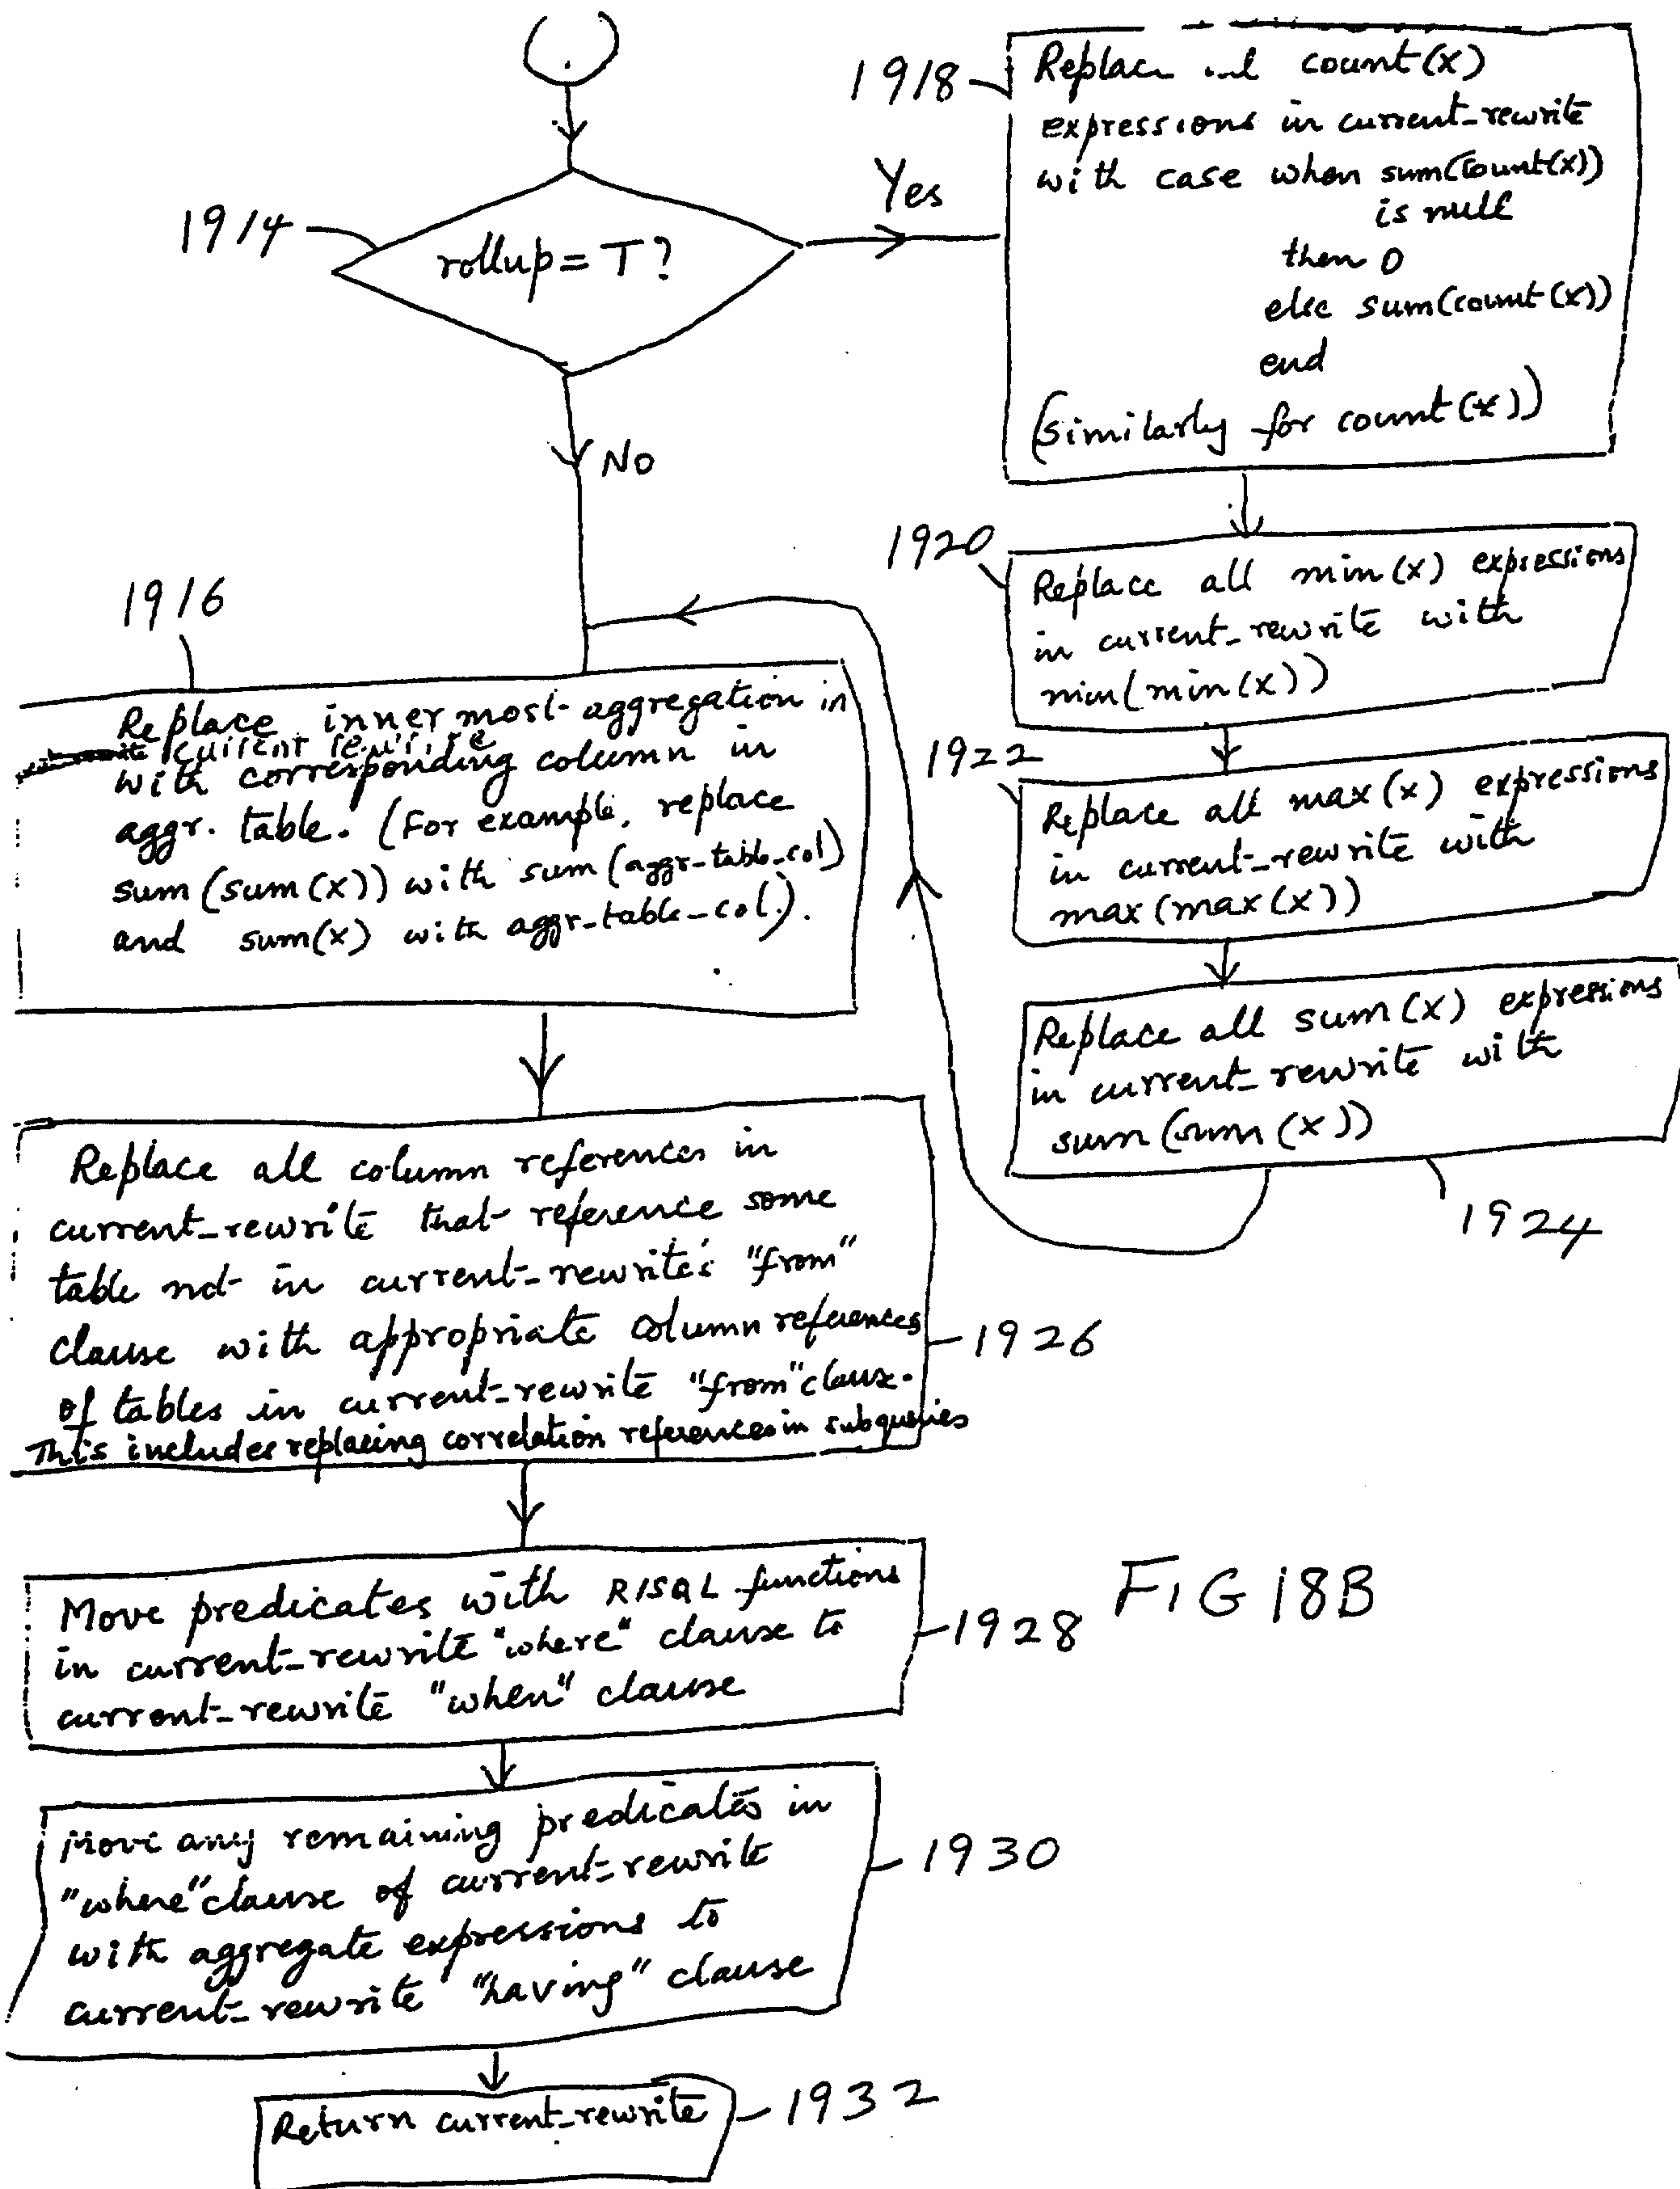 1914
rollup = T?
Yes
No
1918
Replace count(x)
expressions in current_rewrite
with case when sum(count(x))
is null
then 0
else sum(count(x))
end
(similarly for count(*))
1920
Replace all min(x) expressions
in current_rewrite with
min(min(x))
1922
Replace all max(x) expressions
in current_rewrite with
max(max(x))
Replace all sum(x) expressions
in current_rewrite with
sum(sum(x))
1924
1916
Replace innermost aggregation in
current rewrite
with corresponding column in
aggr. table. (For example, replace
sum(sum(x)) with sum(aggr-table-col)
and sum(x) with aggr-table-col.).
Replace all column references in
current_rewrite that reference some
table not in current_rewrite's "from"
clause with appropriate column references
of tables in current_rewrite "from" clause.
This includes replacing correlation references in subqueries
1926
Move predicates with RISQL functions
in current_rewrite "where" clause to
current_rewrite "when" clause
1928
FIG 18B
Move any remaining predicates in
"where" clause of current_rewrite
with aggregate expressions to
current_rewrite "having" clause
1930
Return current_rewrite
1932